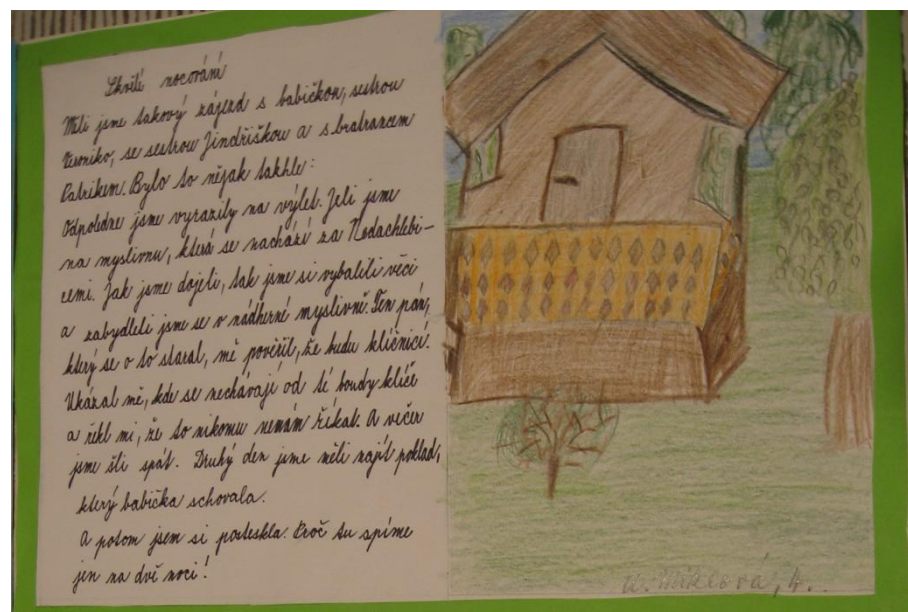 Skvělé nocování
Měli jsme takový zájezd s babičkou, sestrou
Veroniko, se sestrou Jindřiškou a s bratrancem
Patrikem. Bylo to nějak takhle:
Odpoledne jsme vyrazily na výlet. Jeli jsme
na myslivnu, která se nachází za Nodachlebi-
cemi. Jak jsme dojeli, tak jsme si vybalili věci
a zabydleli jsme se v nádherné myslivně. Ten pán,
který se o to staral, mě pověřil, že budu klíčnicí.
Ukázal mě, kde se nechávají od té boudy klíče
a řekl mi, že to nikomu nemám říkat. A večer
jsme šli spát. Druhý den jsme měli najít poklad,
který babička schovala.
A potom jsem si posteskla. Proč tu spíme
jen na dvě noci!
Miklová, 4.